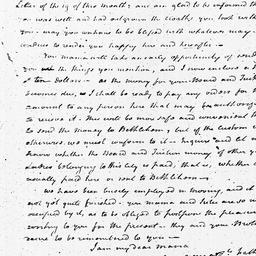 Letter of the 19 of this Month, and am glad to be informed that
you was well and had outgrown the Cloaths you took with
you. may you continue to be blessed with whatever may
conduce to render you happy here and hereafter.
Your mama will take an early opportunity of sending
you all the things you mention, and I now enclose a
ten Dollars. as the money for your Board and Tuition
becomes due, I shall be ready to pay any orders for the
amount to any person here that may be authorized
to receive it. this will be more safe and convenient than
to send the money to Bethlehem; but if the custom is
otherwise, we must conform to it. Inquire and let me
know whether the Board and Tuition money of other young
Ladies belonging to this City is paid, that is, whether it is
usually paid here or sent to Bethlehem.
We have been busily employed in moving, and it
not yet quite finished. your mama and Sister are so much
occupied by it, as to be obliged to postpone the pleasure of
writing to you for the present. they and your Brother
desire to be remembered to you
I am my dear Maria